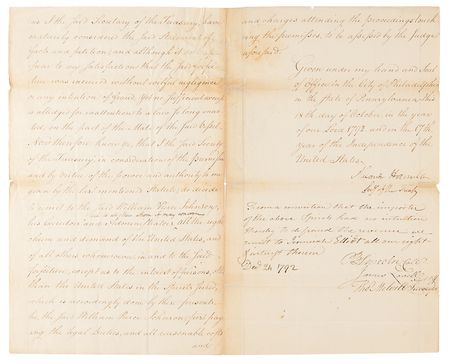 as I the said Secretary of the Treasury have
maturely considered the said Statement of
facts and petition; and although it does
pear to my satisfaction that the said forfei-
ture was incurred without wilful negligence
or any intention of fraud, yet no sufficient
is alledged for
ted, on the part of the of the said Vessel.
Now therefore know ye, that I the said Secretary
of the Treasury, in consideration of the premises
and by virtue of the power and authority to me
given by the last mentioned Statute, do decide
to remit to the said William Peirce Johnson,
his Executors and Administrators, all the right
claim and demand of the United States, and
of all others whomsoever, in and to the said
forfeiture, except as to the interest of
than the United States in the Spirits seized,
which is accordingly done by these presents,
he the said William Peirce Johnson first pay-
ing the legal Duties, and all reasonable costs
and
and charges attending the proceedings touch-
ing the premises, to be assessed by the Judge
aforesaid.
Given under my hand and Seal
of Office in the City of Philadelphia
in the State of Pennsylvania this
18th day of October, in the year
of our Lord 1792, and in the 17th
year of the Independence of the
United States.
From a conviction that the importer
of the above Spirits had no intention
thereby to defraud the revenue we
remit to Simon Elliot all our right
Dec 24 1792
B Lincoln Coll
James Lovell
Thos Melvill Surveyor